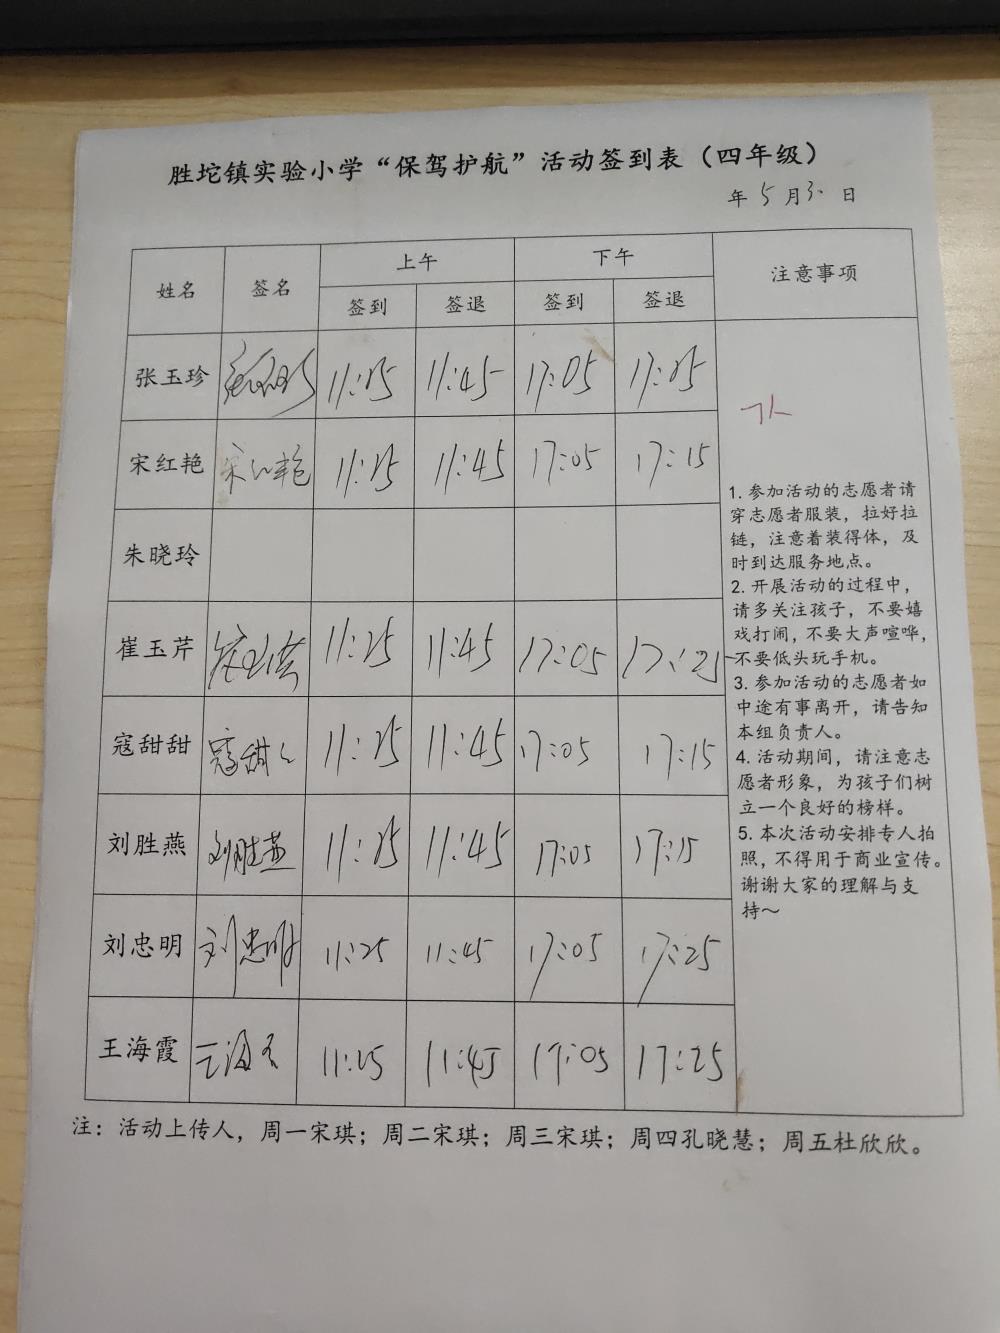 胜坨镇实验小学“保驾护航”活动签到表（四年级）
年 5 月 30 日
姓名 签名 上午 下午 注意事项
签到 签退 签到 签退
张玉珍 11:25 11:45 17:05 17:25
宋红艳 宋红艳 11:25 11:45 17:05 17:15
朱晓玲
崔玉芹 崔玉芹 11:25 11:45 17:05 17:25
寇甜甜 寇甜く 11:25 11:45 17:05 17:15
刘胜燕 刘胜燕 11:25 11:45 17:05 17:15
刘忠明 刘忠明 11:25 11:45 17:05 17:25
王海霞 王海霞 11:25 11:45 17:05 17:25
1. 参加活动的志愿者请
穿志愿者服装，拉好拉
链，注意着装得体，及
时到达服务地点。
2. 开展活动的过程中，
请多关注孩子，不要嬉
戏打闹，不要大声喧哗，
不要低头玩手机。
3. 参加活动的志愿者如
中途有事离开，请告知
本组负责人。
4. 活动期间，请注意志
愿者形象，为孩子们树
立一个良好的榜样。
5. 本次活动安排专人拍
照，不得用于商业宣传。
谢谢大家的理解与支
持～
注：活动上传人，周一宋琪；周二宋琪；周三宋琪；周四孔晓慧；周五杜欣欣。